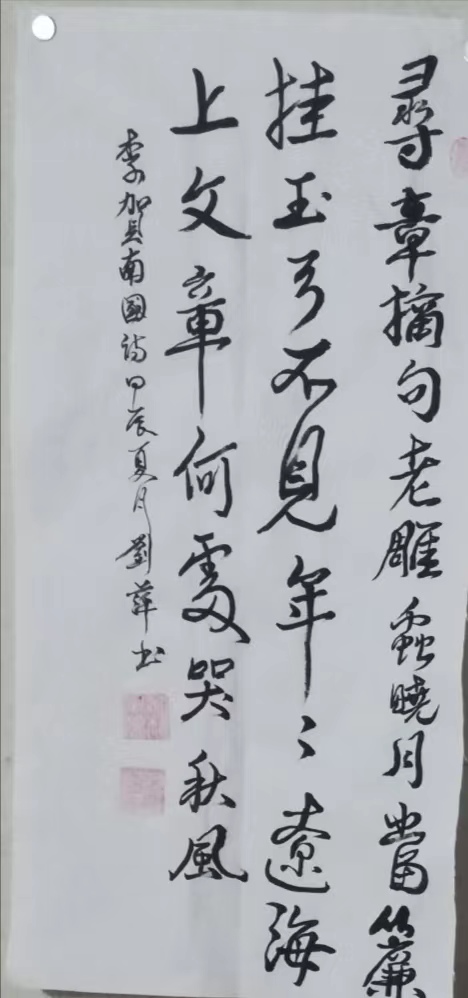 尋章摘句老雕蟲曉月當簾
挂玉弓不見年〻遼海
上文章何處哭秋風
李賀南園詩甲辰夏月劉萍书